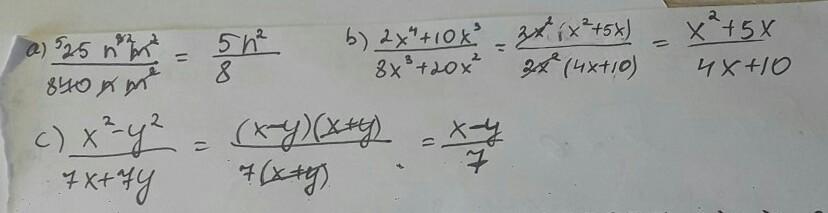 a) \frac{^5\cancel{25} n^{\cancel{3}2} \cancel{m^2}}{8\cancel{40} \cancel{n} \cancel{m^2}} = \frac{5n^2}{8} b) \frac{2x^4+10x^3}{8x^3+20x^2} = \frac{\cancel{2x^2}(x^2+5x)}{\cancel{2x^2}(4x+10)} = \frac{x^2+5x}{4x+10}
c) \frac{x^2-y^2}{7x+7y} = \frac{(x-y)(\cancel{x+y})}{7(\cancel{x+y})} = \frac{x-y}{7}